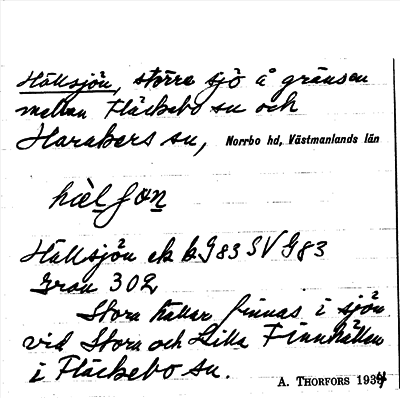 Hällsjön, större sjö å gränsen
mellan Fläckebo sn och
Harakers sn, Norrbo hd, Västmanlands län
hɛ̀lʃɷn
Hällsjön ek bl G 83 SV G 83
Gran 302
Stora hällar finnas i sjön
vid Stora och Lilla Finnhällan
i Fläckebo sn.
A. THORFORS 1934